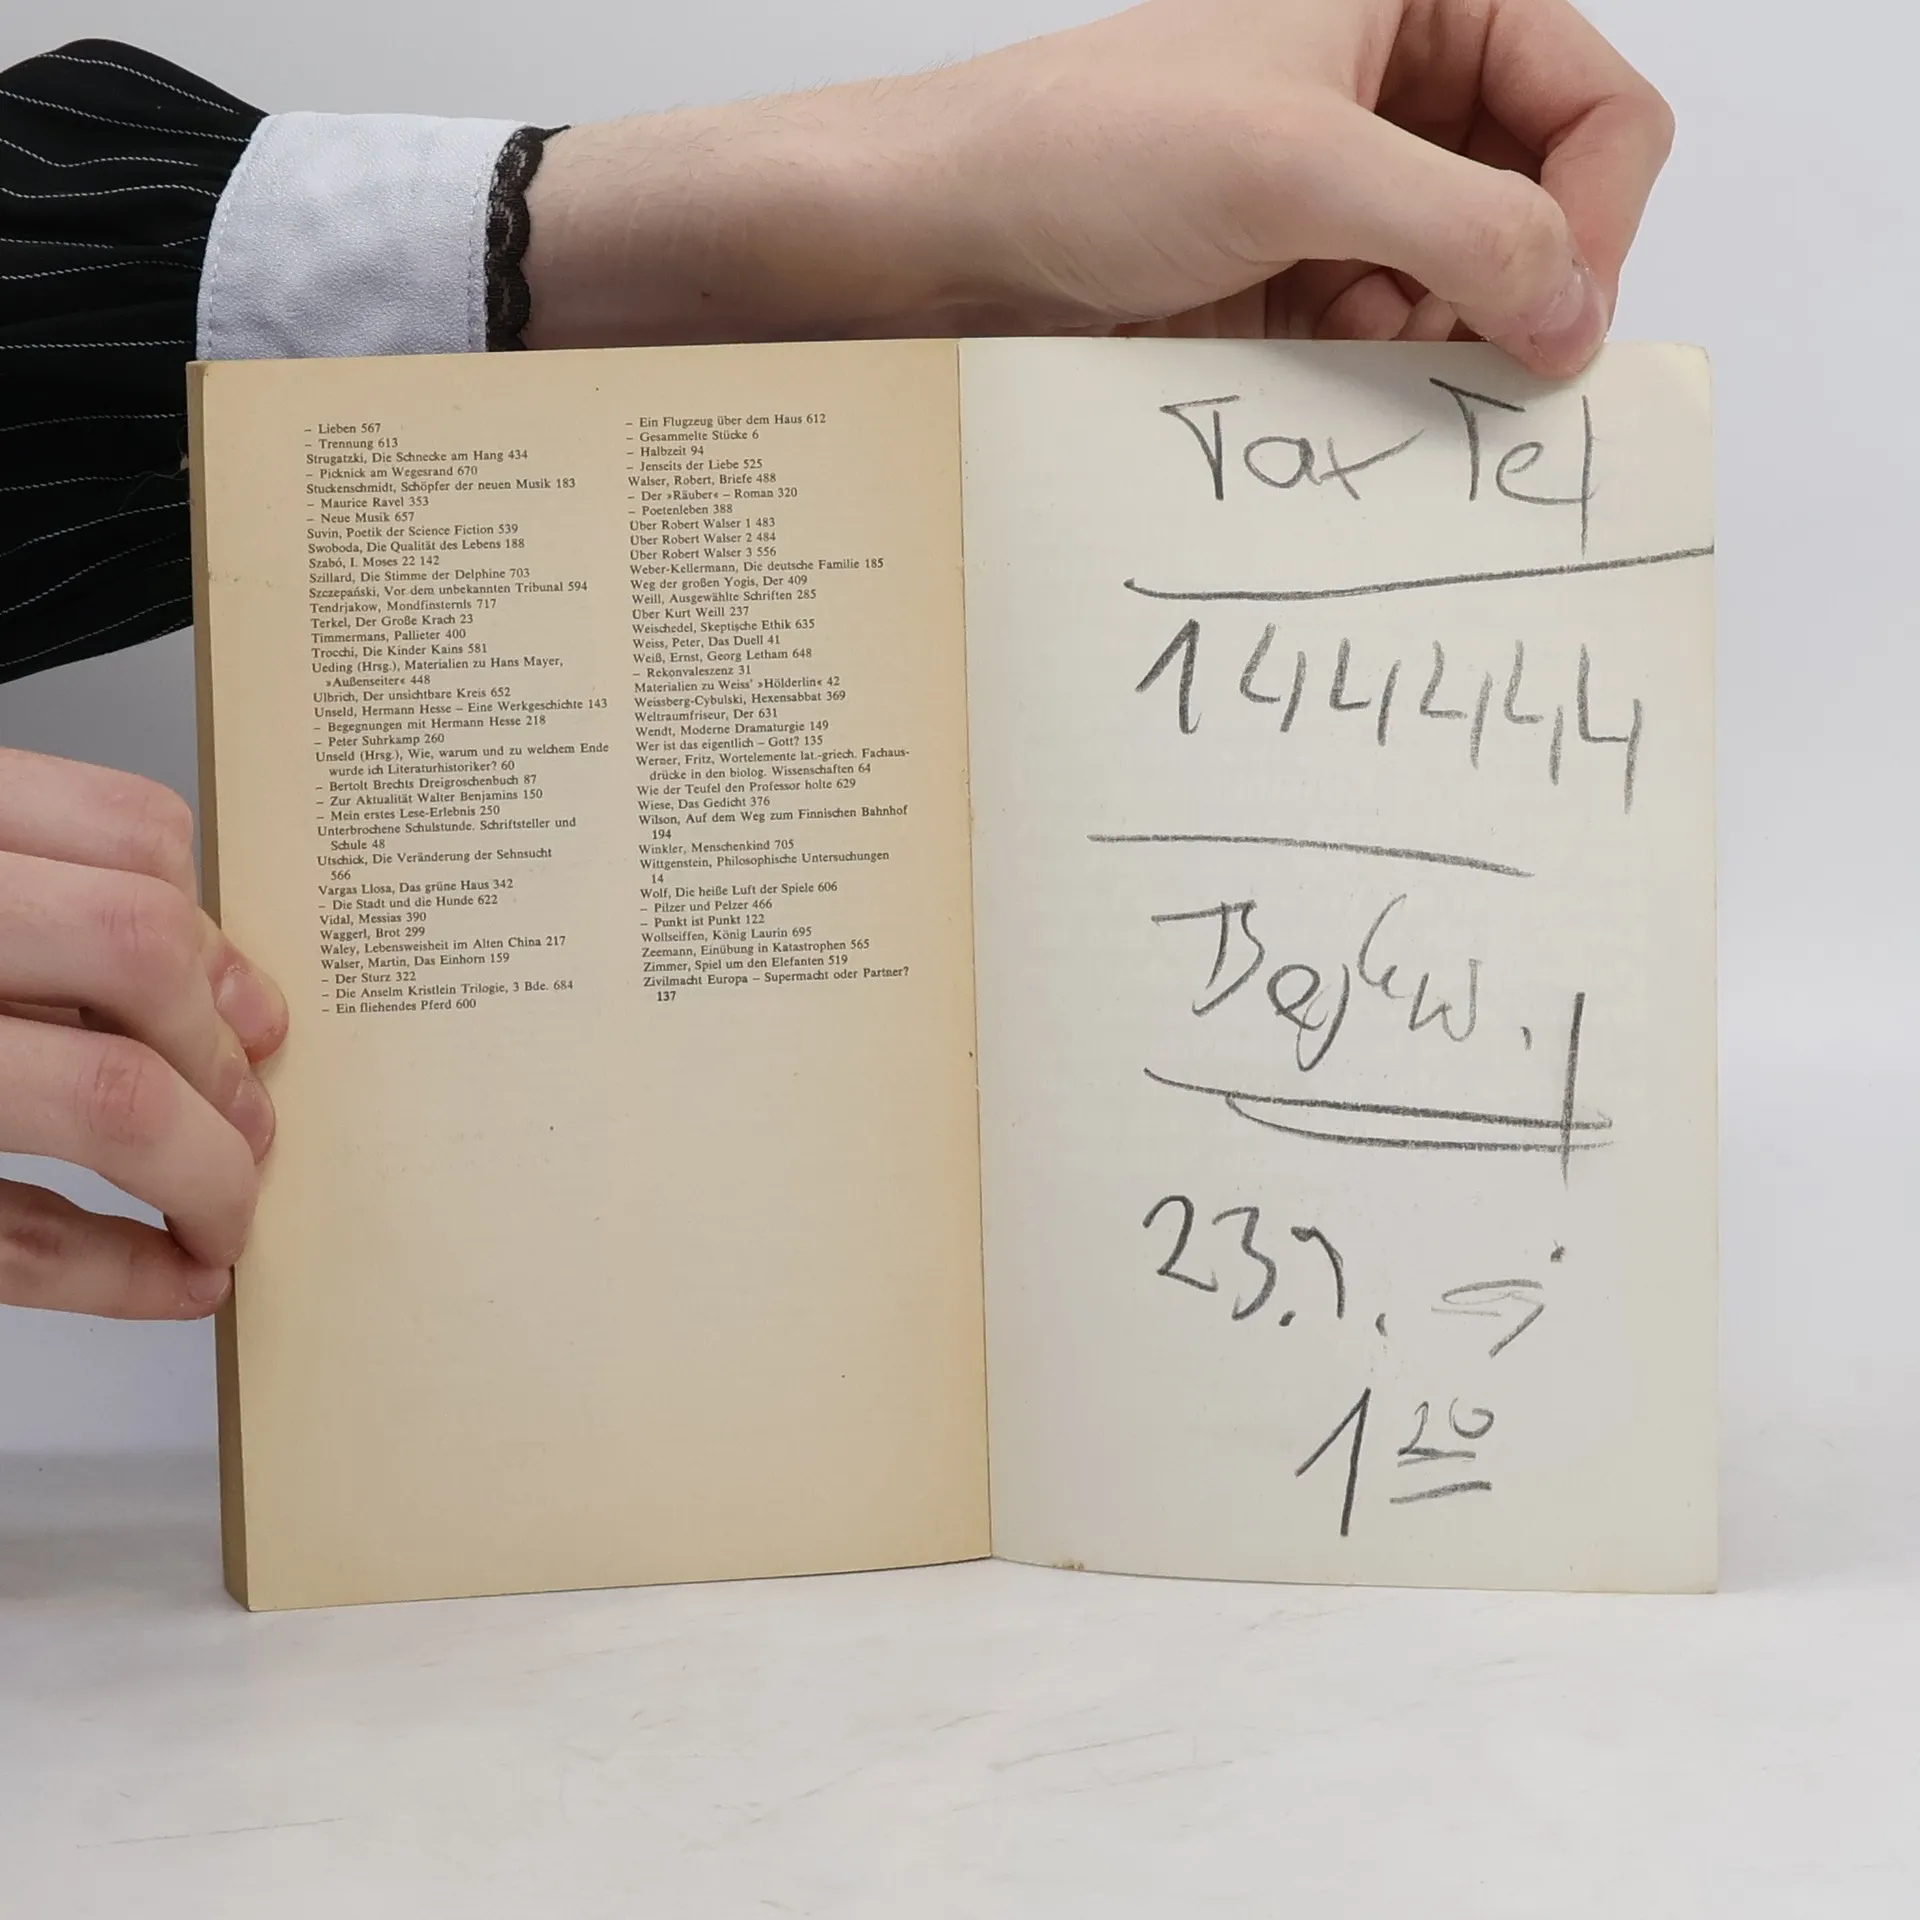 – Lieben 567
– Trennung 613
Strugatzki, Die Schnecke am Hang 434
– Picknick am Wegesrand 670
Stuckenschmidt, Schöpfer der neuen Musik 183
– Maurice Ravel 353
– Neue Musik 657
Suvin, Poetik der Science Fiction 539
Swoboda, Die Qualität des Lebens 188
Szabó, I. Moses 22 142
Szillard, Die Stimme der Delphine 703
Szczepański, Vor dem unbekannten Tribunal 594
Tendrjakow, Mondfinsternis 717
Terkel, Der Große Krach 23
Timmermans, Pallieter 400
Trocchi, Die Kinder Kains 581
Ueding (Hrsg.), Materialien zu Hans Mayer,
»Außenseiter« 448
Ulbrich, Der unsichtbare Kreis 652
Unseld, Hermann Hesse – Eine Werkgeschichte 143
– Begegnungen mit Hermann Hesse 218
– Peter Suhrkamp 260
Unseld (Hrsg.), Wie, warum und zu welchem Ende
wurde ich Literaturhistoriker? 60
– Bertolt Brechts Dreigroschenbuch 87
– Zur Aktualität Walter Benjamins 150
– Mein erstes Lese-Erlebnis 250
Unterbrochene Schulstunde. Schriftsteller und
Schule 48
Utschick, Die Veränderung der Sehnsucht
566
Vargas Llosa, Das grüne Haus 342
– Die Stadt und die Hunde 622
Vidal, Messias 390
Waggerl, Brot 299
Waley, Lebensweisheit im Alten China 217
Walser, Martin, Das Einhorn 159
– Der Sturz 322
– Die Anselm Kristlein Trilogie, 3 Bde. 684
– Ein fliehendes Pferd 600
– Ein Flugzeug über dem Haus 612
– Gesammelte Stücke 6
– Halbzeit 94
– Jenseits der Liebe 525
Walser, Robert, Briefe 488
– Der »Räuber« – Roman 320
– Poetenleben 388
Über Robert Walser 1 483
Über Robert Walser 2 484
Über Robert Walser 3 556
Weber-Kellermann, Die deutsche Familie 185
Weg der großen Yogis, Der 409
Weill, Ausgewählte Schriften 285
Über Kurt Weill 237
Weischedel, Skeptische Ethik 635
Weiss, Peter, Das Duell 41
Weiß, Ernst, Georg Letham 648
– Rekonvaleszenz 31
Materialien zu Weiss' »Hölderlin« 42
Weissberg-Cybulski, Hexensabbat 369
Weltraumfriseur, Der 631
Wendt, Moderne Dramaturgie 149
Wer ist das eigentlich – Gott? 135
Werner, Fritz, Wortelemente lat.-griech. Fachaus-
drücke in den biolog. Wissenschaften 64
Wie der Teufel den Professor holte 629
Wiese, Das Gedicht 376
Wilson, Auf dem Weg zum Finnischen Bahnhof
194
Winkler, Menschenkind 705
Wittgenstein, Philosophische Untersuchungen
14
Wolf, Die heiße Luft der Spiele 606
– Pilzer und Pelzer 466
– Punkt ist Punkt 122
Wollseiffen, König Laurin 695
Zeemann, Einübung in Katastrophen 565
Zimmer, Spiel um den Elefanten 519
Zivilmacht Europa – Supermacht oder Partner?
137
Tax Tel
144444
23.
1 20